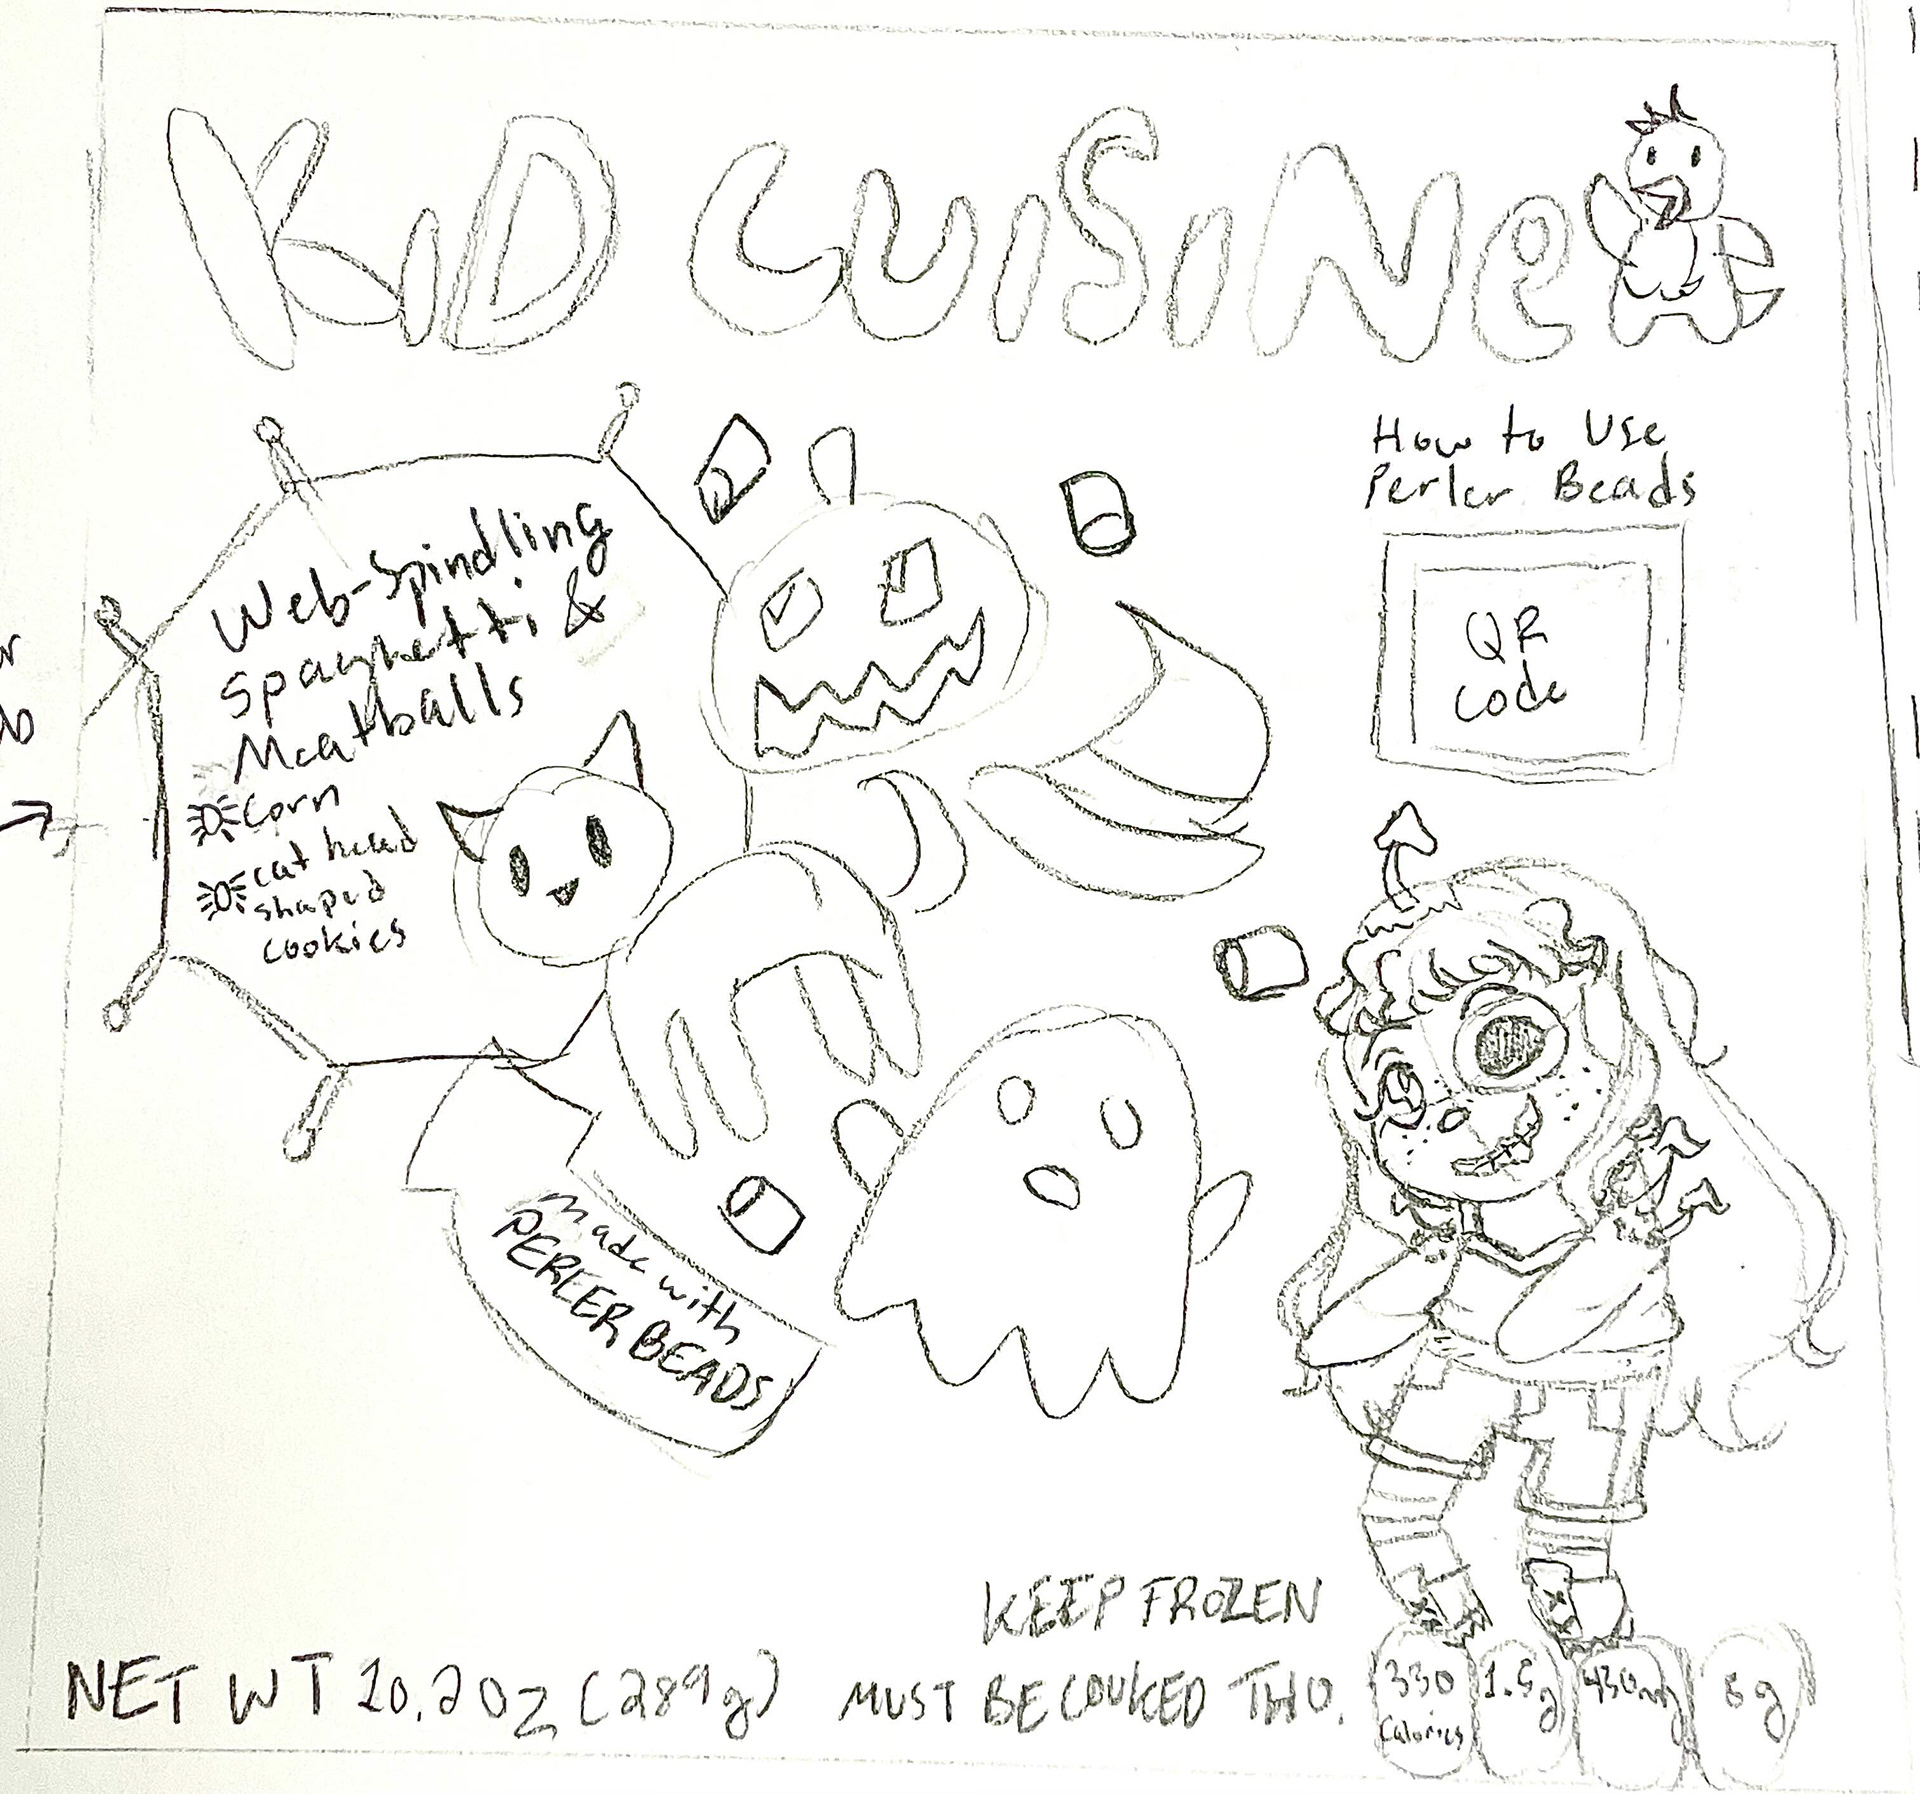 KiD CUiSiNe
How to Use
Perler Beads
QR
code
Web-Spindling
Spaghetti &
Meatballs
corn
cat head
shaped
cookies
made with
PERLER BEADS
KEEP FROZEN
NET WT 10.2 OZ (289g)
MUST BE COOKED THO.
330
calories
1.5g
430mg
6g